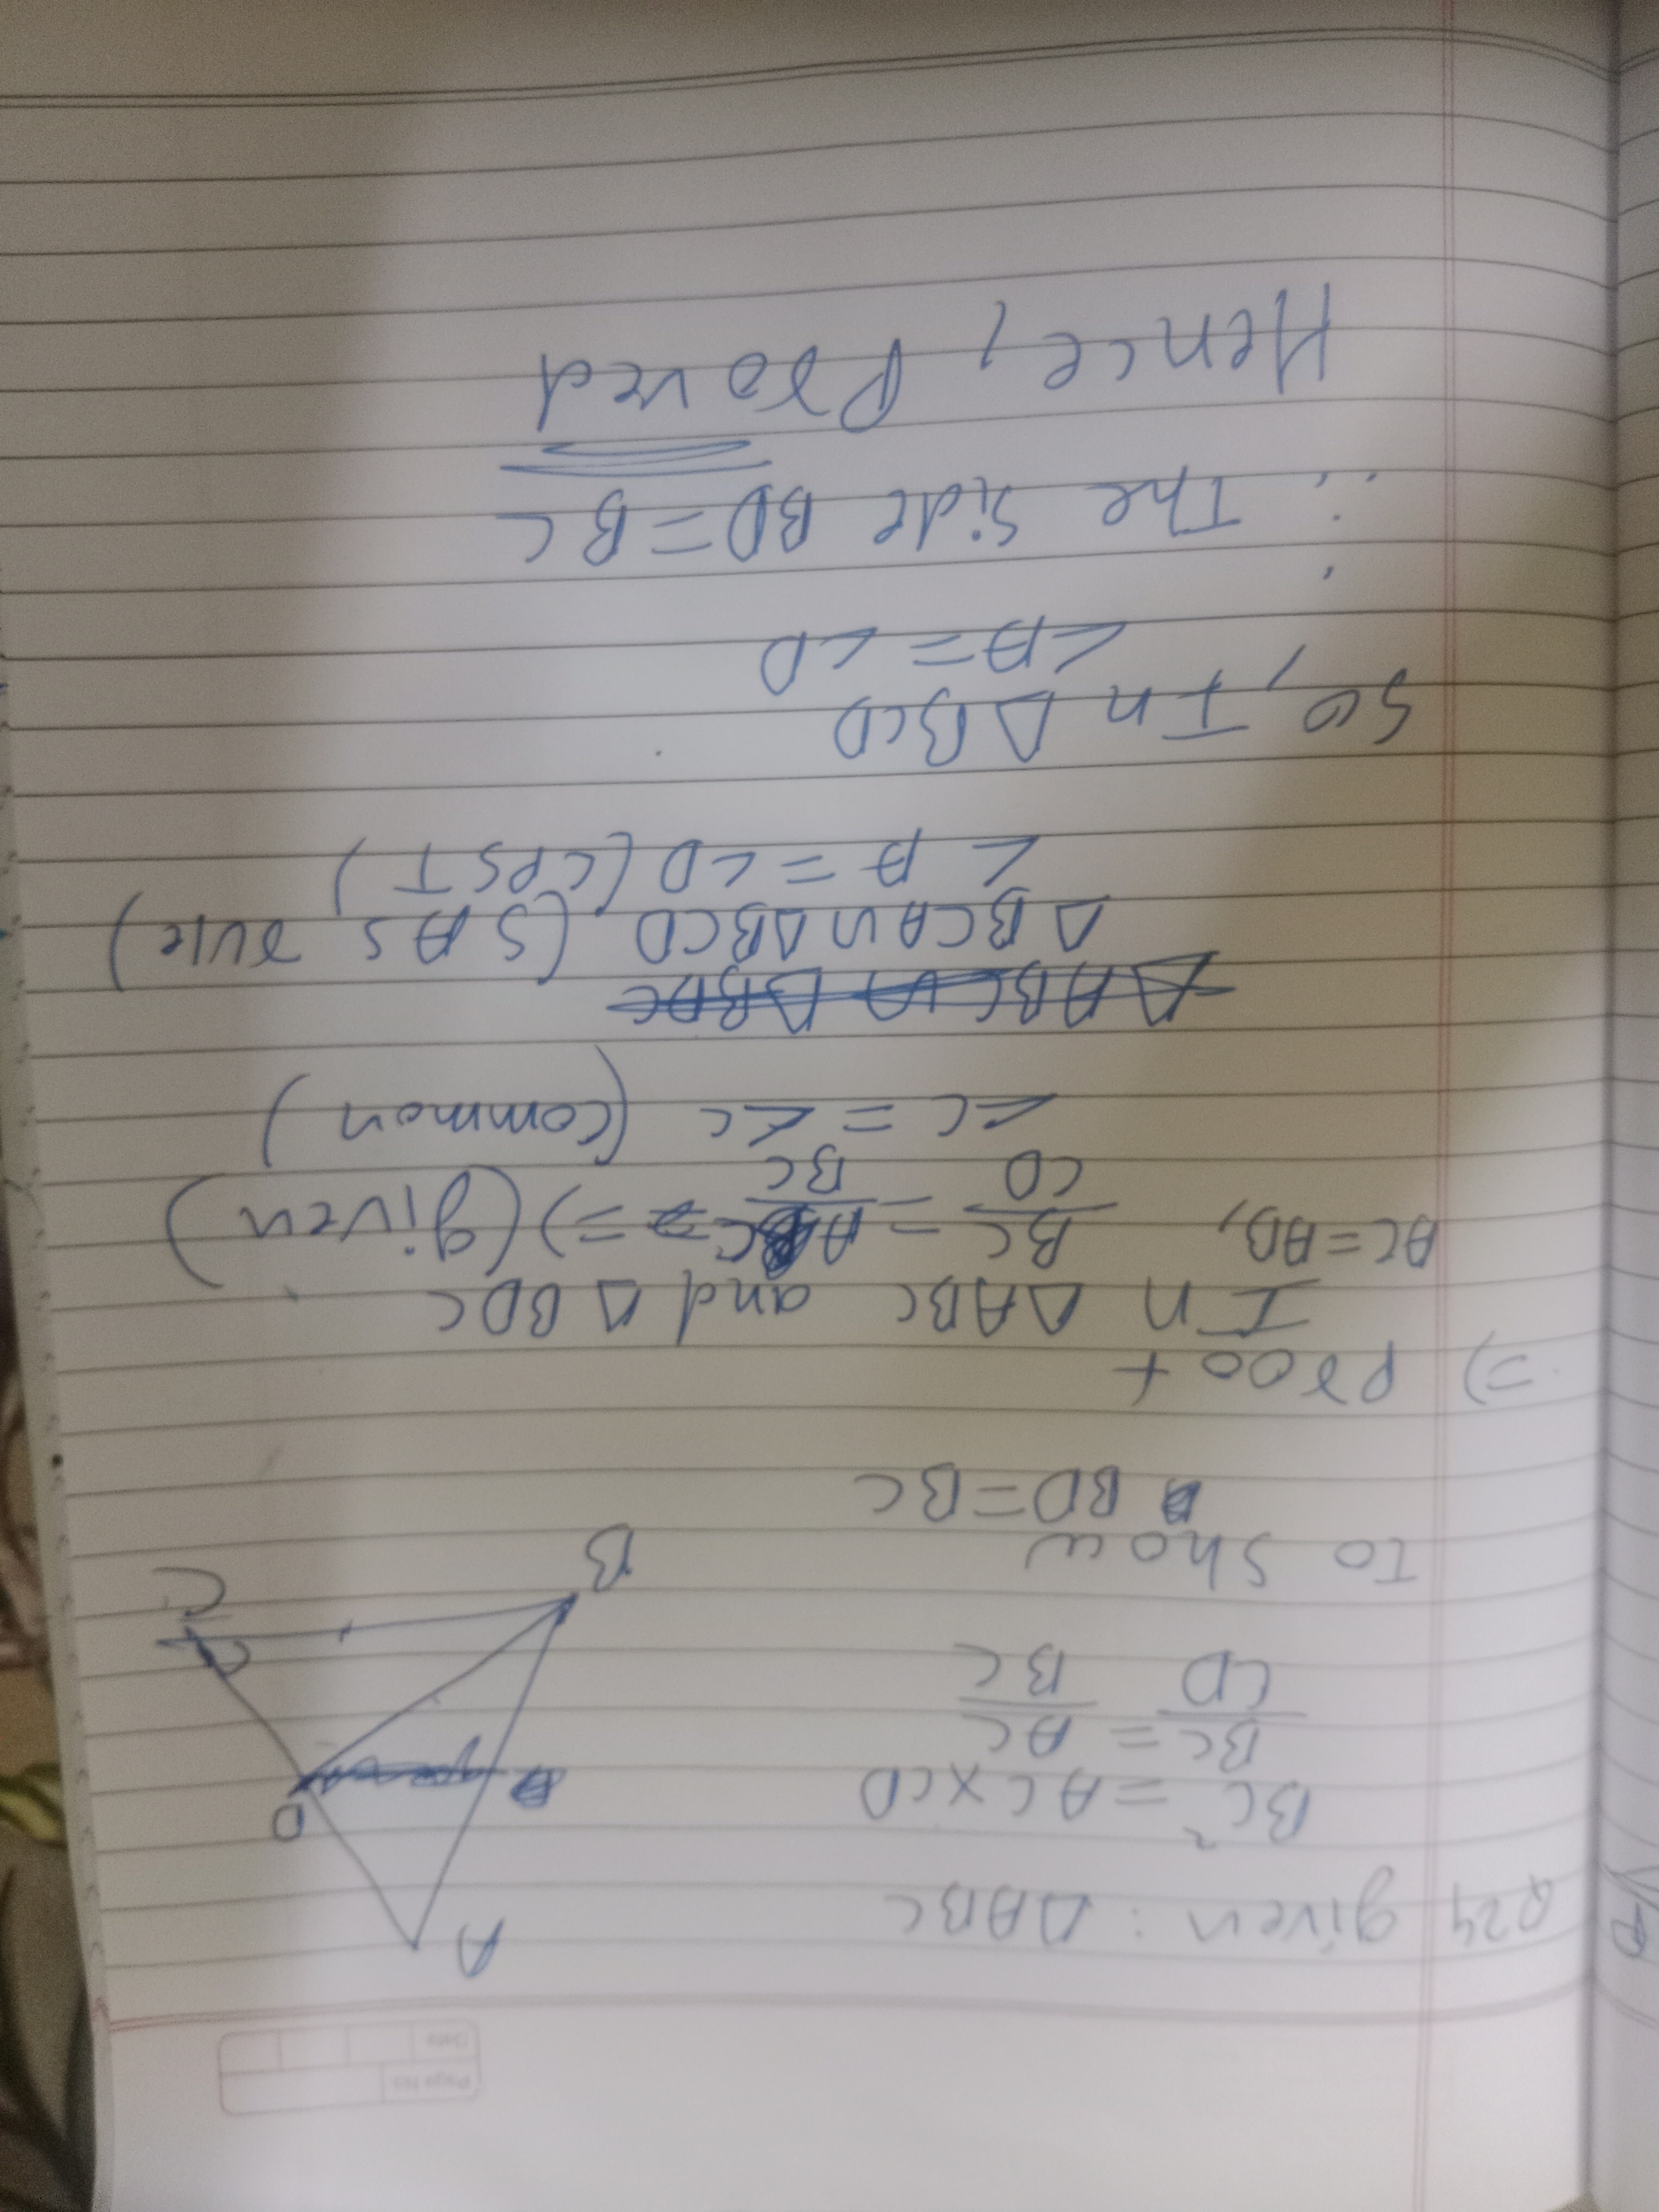 Page No.
Date
Q24 given : ΔABC
BC² = AC × CD
BC/CD = AC/BC
A
D
C
B
C
To show
BD = BC
=> Proof
In ΔABC and ΔBDC
AC = AB, BC/CD = AC/BC => (given)
∠C = ∠C (common)
ΔBCA ~ ΔBCD (SAS rule)
∠A = ∠D (CPST)
So, In ΔBCD
∠A = ∠D
∴ The side BD = BC
Hence, Proved